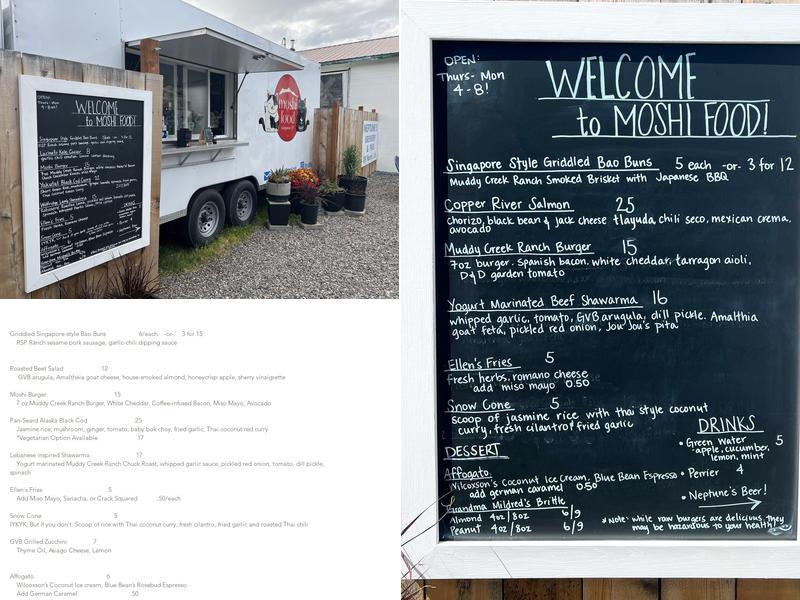 OPEN:
Thurs-Mon
4-8!
WELCOME
to MOSHI FOOD!
Singapore Style Griddled Bao Buns
Lacinato Kale Caesar 8
Moshi Burger
Yakutat Black Cod Curry
Ellen's Fries 5
Snow Cone
Affogato
moshi
food
Griddled Singapore-style Bao Buns 6/each. -or- 3 for 15
RSP Ranch sesame pork sausage, garlic-chili dipping sauce
Roasted Beet Salad 12
GVB arugula, Amaltheia goat cheese, house-smoked almond, honeycrisp apple, sherry vinaigrette
Moshi Burger 15
7 oz Muddy Creek Ranch Burger, White Cheddar, Coffee-infused Bacon, Miso Mayo, Avocado
Pan-Seard Alaska Black Cod 25
Jasmine rice, mushroom, ginger, tomato, baby bok choy, fried garlic, Thai coconut red curry
*Vegetarian Option Available 17
Lebanese inspired Shawarma 17
Yogurt marinated Muddy Creek Ranch Chuck Roast, whipped garlic sauce, pickled red onion, tomato, dill pickle,
spinach
Ellen's Fries 5
Add Miso Mayo, Sariacha, or Crack Squared .50/each
Snow Cone 5
IYKYK; But if you don't: Scoop of rice with Thai coconut curry, fresh cilantro, fried garlic and roasted Thai chili
GVB Grilled Zucchini 7
Thyme Oil, Asiago Cheese, Lemon
Affogato 6
Wilcoxson's Coconut Ice cream, Blue Bean's Rosebud Espresso
Add German Caramel .50
OPEN:
Thurs-Mon
4-8!
WELCOME
to MOSHI FOOD!
Singapore Style Griddled Bao Buns 5 each -or- 3 for 12
Muddy Creek Ranch Smoked Brisket with Japanese BBQ
Copper River Salmon 25
chorizo, black bean & jack cheese tlayuda, chili seco, mexican crema,
avocado
Muddy Creek Ranch Burger 15
7oz burger, spanish bacon, white cheddar, tarragon aioli,
D&D garden tomato
Yogurt Marinated Beef Shawarma 16
whipped garlic, tomato, GVB arugula, dill pickle, Amalthia
goat feta, pickled red onion, Jou Jou's pita
Ellen's Fries 5
fresh herbs, romano cheese
add miso mayo 0.50
Snow Cone 5
scoop of jasmine rice with thai style coconut
curry, fresh cilantro & fried garlic
DESSERT
Affogato
Wilcoxson's Coconut Ice Cream, Blue Bean Espresso
add german caramel 0.50
Grandma Mildred's Brittle
Almond 4oz/8oz 6/9
Peanut 4oz/8oz 6/9
DRINKS
• Green Water 5
apple, cucumber,
lemon, mint
• Perrier 4
• Neptune's Beer!
*Note: while raw burgers are delicious, they
may be hazardous to your health!